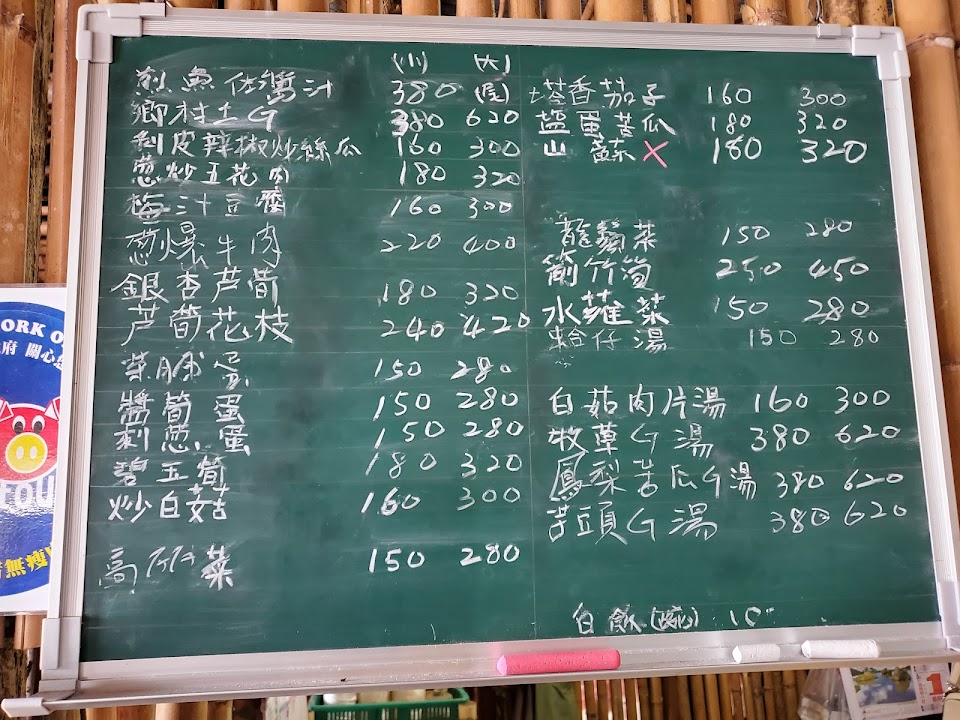 (小) (大)
煎魚佐醬汁 380 (隻)
鄉村土G 380 620
剝皮辣椒炒絲瓜 160 300
蔥炒五花肉 180 320
梅汁豆腐 160 300
蔥爆牛肉 220 400
銀杏芦筍 180 320
芦筍花枝 240 420
菜脯蛋 150 280
醬筍蛋 150 280
刺蔥蛋 150 280
碧玉筍 180 320
炒白菇 160 300
高麗菜 150 280
塔香茄子 160 300
鹽蛋苦瓜 180 320
山蘇 X 180 320
龍鬚菜 150 280
箭竹筍 250 450
水蓮菜 150 280
蛤仔湯 150 280
白菇肉片湯 160 300
牧草G湯 380 620
鳳梨苦瓜G湯 380 620
苦頭G湯 380 620
白飯(碗) 10
ORK O
府 關心
無瘦
1